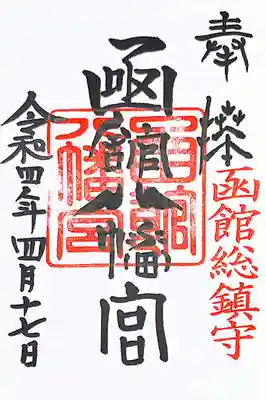 奉拝
函館総鎮守
函館八幡宮
令和四年四月十七日